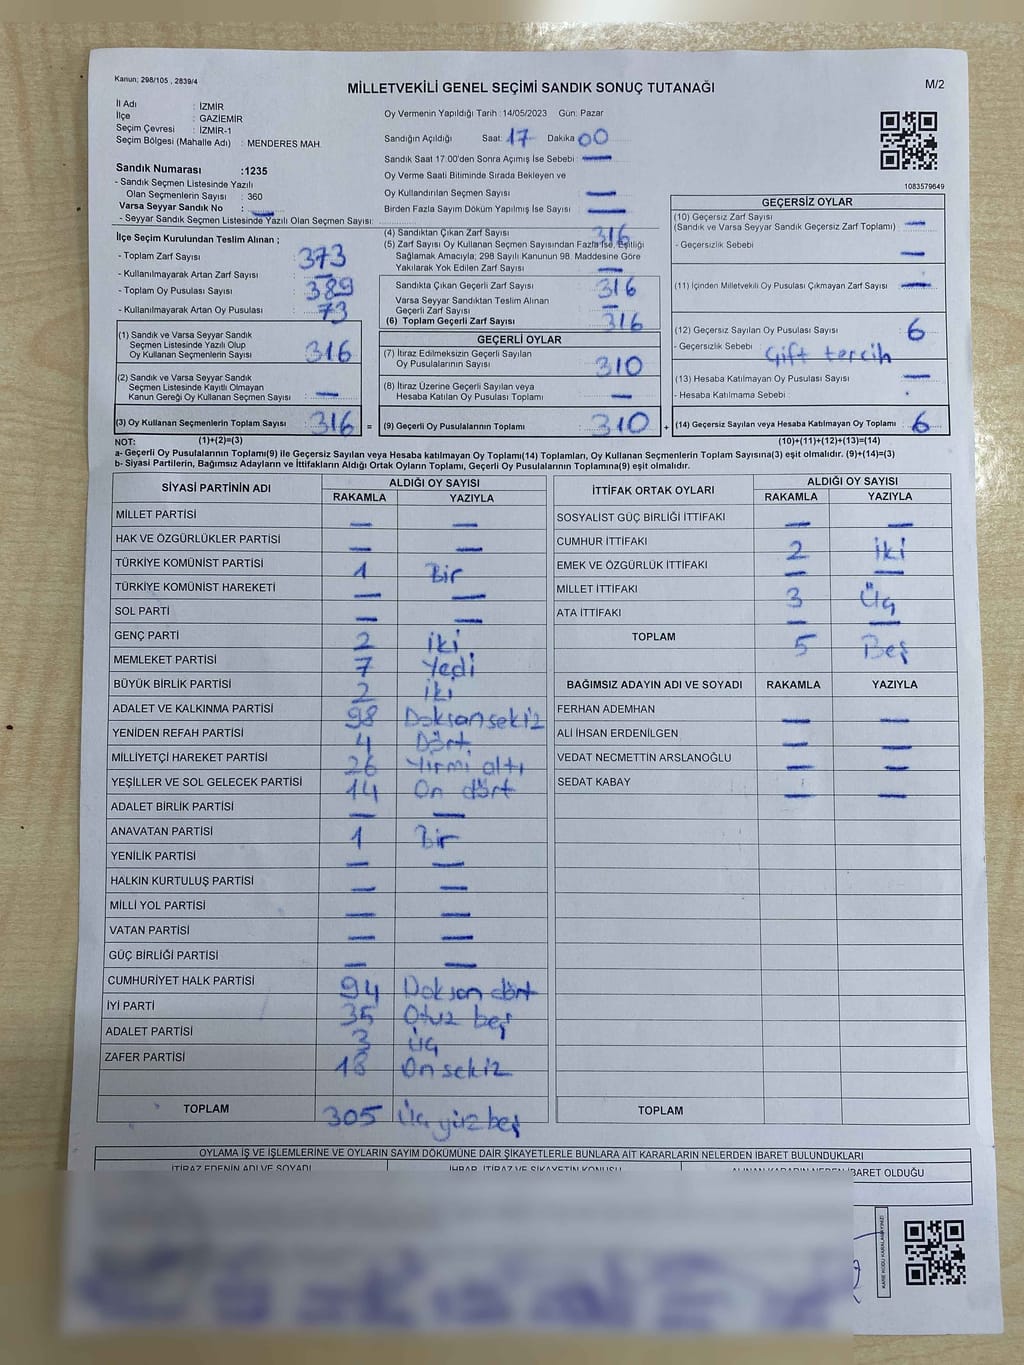 Kanun; 298/105 , 2839/4
MİLLETVEKİLİ GENEL SEÇİMİ SANDIK SONUÇ TUTANAĞI
M/2
İl Adı : İZMİR
İlçe : GAZİEMİR
Seçim Çevresi : İZMİR-1
Seçim Bölgesi (Mahalle Adı) : MENDERES MAH.
Oy Vermenin Yapıldığı Tarih : 14/05/2023 Gün: Pazar
Sandığın Açıldığı Saat: 17 Dakika 00
Sandık Saat 17:00'den Sonra Açımış İse Sebebi : —
Oy Verme Saati Bitiminde Sırada Bekleyen ve
Oy Kullandırılan Seçmen Sayısı : —
Birden Fazla Sayım Döküm Yapılmış İse Sayısı : —
1083579649
Sandık Numarası :1235
- Sandık Seçmen Listesinde Yazılı
Olan Seçmenlerin Sayısı : 360
Varsa Seyyar Sandık No : —
- Seyyar Sandık Seçmen Listesinde Yazılı Olan Seçmen Sayısı:
İlçe Seçim Kurulundan Teslim Alınan ;
- Toplam Zarf Sayısı : 373
- Kullanılmayarak Artan Zarf Sayısı : —
- Toplam Oy Pusulası Sayısı : 389
- Kullanılmayarak Artan Oy Pusulası : 73
(1) Sandık ve Varsa Seyyar Sandık
Seçmen Listesinde Yazılı Olup
Oy Kullanan Seçmenlerin Sayısı : 316
(2) Sandık ve Varsa Seyyar Sandık
Seçmen Listesinde Kayıtlı Olmayan
Kanun Gereği Oy Kullanan Seçmen Sayısı : —
(3) Oy Kullanan Seçmenlerin Toplam Sayısı : 316 =
(4) Sandıktan Çıkan Zarf Sayısı : 316
(5) Zarf Sayısı Oy Kullanan Seçmen Sayısından Fazla İse, Eşitliği
Sağlamak Amacıyla; 298 Sayılı Kanunun 98. Maddesine Göre
Yakılarak Yok Edilen Zarf Sayısı : —
Sandıkta Çıkan Geçerli Zarf Sayısı : 316
Varsa Seyyar Sandıktan Teslim Alınan
Geçerli Zarf Sayısı : —
(6) Toplam Geçerli Zarf Sayısı : 316
GEÇERLİ OYLAR
(7) İtiraz Edilmeksizin Geçerli Sayılan
Oy Pusulalarının Sayısı : 310
(8) İtiraz Üzerine Geçerli Sayılan veya
Hesaba Katılan Oy Pusulası Toplamı : —
(9) Geçerli Oy Pusulalarının Toplamı : 310 +
GEÇERSİZ OYLAR
(10) Geçersiz Zarf Sayısı
(Sandık ve Varsa Seyyar Sandık Geçersiz Zarf Toplamı) : —
- Geçersizlik Sebebi : —
(11) İçinden Milletvekili Oy Pusulası Çıkmayan Zarf Sayısı : —
(12) Geçersiz Sayılan Oy Pusulası Sayısı : 6
- Geçersizlik Sebebi : Çift tercih
(13) Hesaba Katılmayan Oy Pusulası Sayısı : —
- Hesaba Katılmama Sebebi :
(14) Geçersiz Sayılan veya Hesaba Katılmayan Oy Toplamı : 6
NOT: (1)+(2)=(3) (10)+(11)+(12)+(13)=(14)
a- Geçerli Oy Pusulalarının Toplamı(9) ile Geçersiz Sayılan veya Hesaba katılmayan Oy Toplamı(14) Toplamları, Oy Kullanan Seçmenlerin Toplam Sayısına(3) eşit olmalıdır. (9)+(14)=(3)
b- Siyasi Partilerin, Bağımsız Adayların ve İttifakların Aldığı Ortak Oyların Toplamı, Geçerli Oy Pusulalarının Toplamına(9) eşit olmalıdır.
SİYASİ PARTİNİN ADI ALDIĞI OY SAYISI
RAKAMLA YAZIYLA
MİLLET PARTİSİ — —
HAK VE ÖZGÜRLÜKLER PARTİSİ — —
TÜRKİYE KOMÜNİST PARTİSİ 1 Bir
TÜRKİYE KOMÜNİST HAREKETİ — —
SOL PARTİ — —
GENÇ PARTİ 2 iki
MEMLEKET PARTİSİ 7 Yedi
BÜYÜK BİRLİK PARTİSİ 2 iki
ADALET VE KALKINMA PARTİSİ 98 Doksansekiz
YENİDEN REFAH PARTİSİ 4 Dört
MİLLİYETÇİ HAREKET PARTİSİ 26 Yirmi altı
YEŞİLLER VE SOL GELECEK PARTİSİ 14 On dört
ADALET BİRLİK PARTİSİ — —
ANAVATAN PARTİSİ 1 Bir
YENİLİK PARTİSİ — —
HALKIN KURTULUŞ PARTİSİ — —
MİLLİ YOL PARTİSİ — —
VATAN PARTİSİ — —
GÜÇ BİRLİĞİ PARTİSİ — —
CUMHURİYET HALK PARTİSİ 94 Doksan dört
İYİ PARTİ 35 Otuz beş
ADALET PARTİSİ 3 üç
ZAFER PARTİSİ 18 Onsekiz
TOPLAM 305 Üçyüzbeş
İTTİFAK ORTAK OYLARI ALDIĞI OY SAYISI
RAKAMLA YAZIYLA
SOSYALİST GÜÇ BİRLİĞİ İTTİFAKI — —
CUMHUR İTTİFAKI 2 İki
EMEK VE ÖZGÜRLÜK İTTİFAKI — —
MİLLET İTTİFAKI 3 Üç
ATA İTTİFAKI — —
TOPLAM 5 Beş
BAĞIMSIZ ADAYIN ADI VE SOYADI RAKAMLA YAZIYLA
FERHAN ADEMHAN — —
ALİ İHSAN ERDENİLGEN — —
VEDAT NECMETTİN ARSLANOĞLU — —
SEDAT KABAY — —
TOPLAM
OYLAMA İŞ VE İŞLEMLERİNE VE OYLARIN SAYIM DÖKÜMÜNE DAİR ŞİKAYETLERLE BUNLARA AİT KARARLARIN NELERDEN İBARET BULUNDUKLARI
İTİRAZ EDENİN ADI VE SOYADI İHBAR, İTİRAZ VE ŞİKAYETİN KONUSU ALINAN KARARIN NEDEN İBARET OLDUĞU